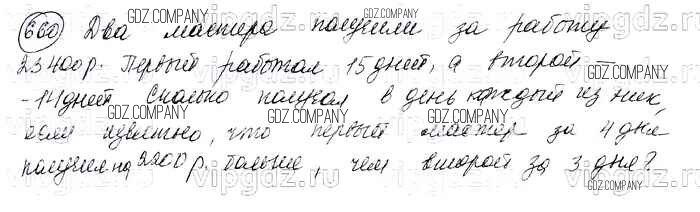 GDZ.COMPANY
660 Два мастера получили за работу
GDZ.COMPANY
23400р. Первый работал 15 дней, а второй –
- 14 дней. Сколько получал в день каждый из них,
GDZ.COMPANY GDZ.COMPANY
если известно, что первый мастер за 4 дня
получил на 2200 р. больше, чем второй за 3 дня?
vipgdz.ru
GDZ.COMPANY